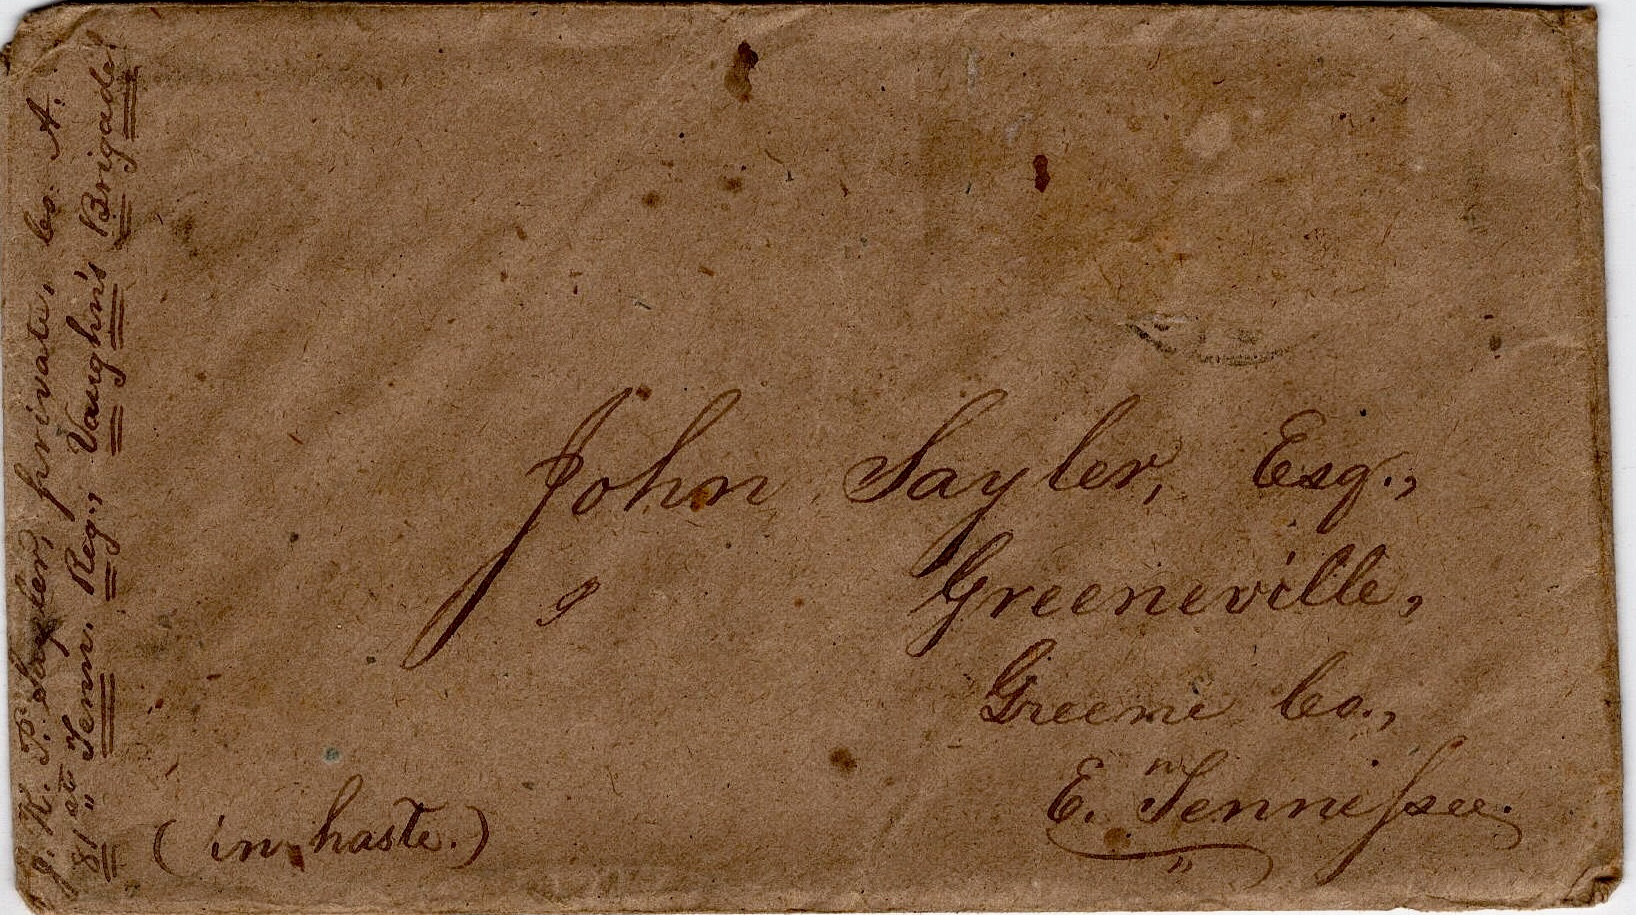 J. K. P. Sayler, private, Co. A.
81st Tenn. Reg., Vaughn's Brigade
John Sayler, Esq.,
Greeneville,
Greene Co.,
E. Tennessee.
(in haste.)